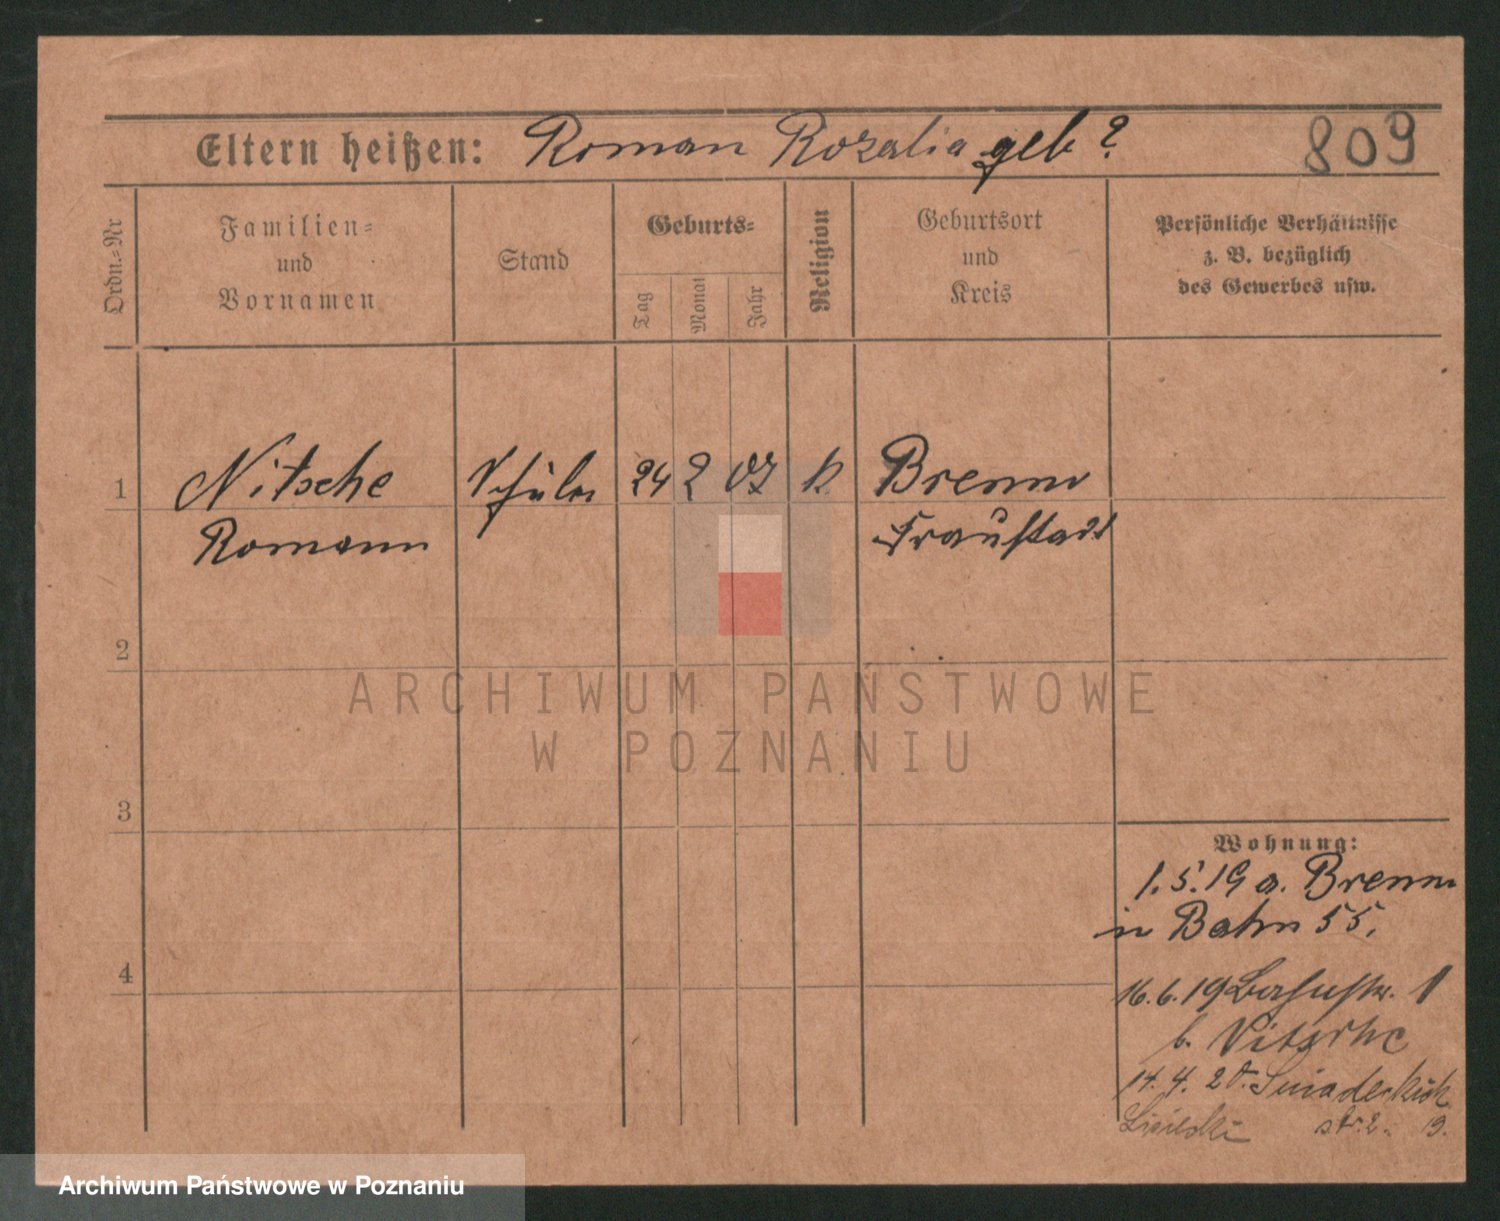 Eltern heißen: Roman Rozalia geb ? 809
Ordn.-Nr
Familien-
und
Vornamen
Stand
Geburts-
Tag
Monat
Jahr
Religion
Geburtsort
und
Kreis
Persönliche Verhältnisse
z. B. bezüglich
des Gewerbes usw.
1 Nitsche Schüler 24 2 07 k. Brenno
Romann Fraustadt
2
3
4
Wohnung:
1.5.19 a. Brenno
in Bahn 55.
16.6.19 1
b. Nitsche
14. 4. 20. Sniadeckich
Lisiecki str. 2. 19.
ARCHIWUM PAŃSTWOWE
W POZNANIU
Archiwum Państwowe w Poznaniu